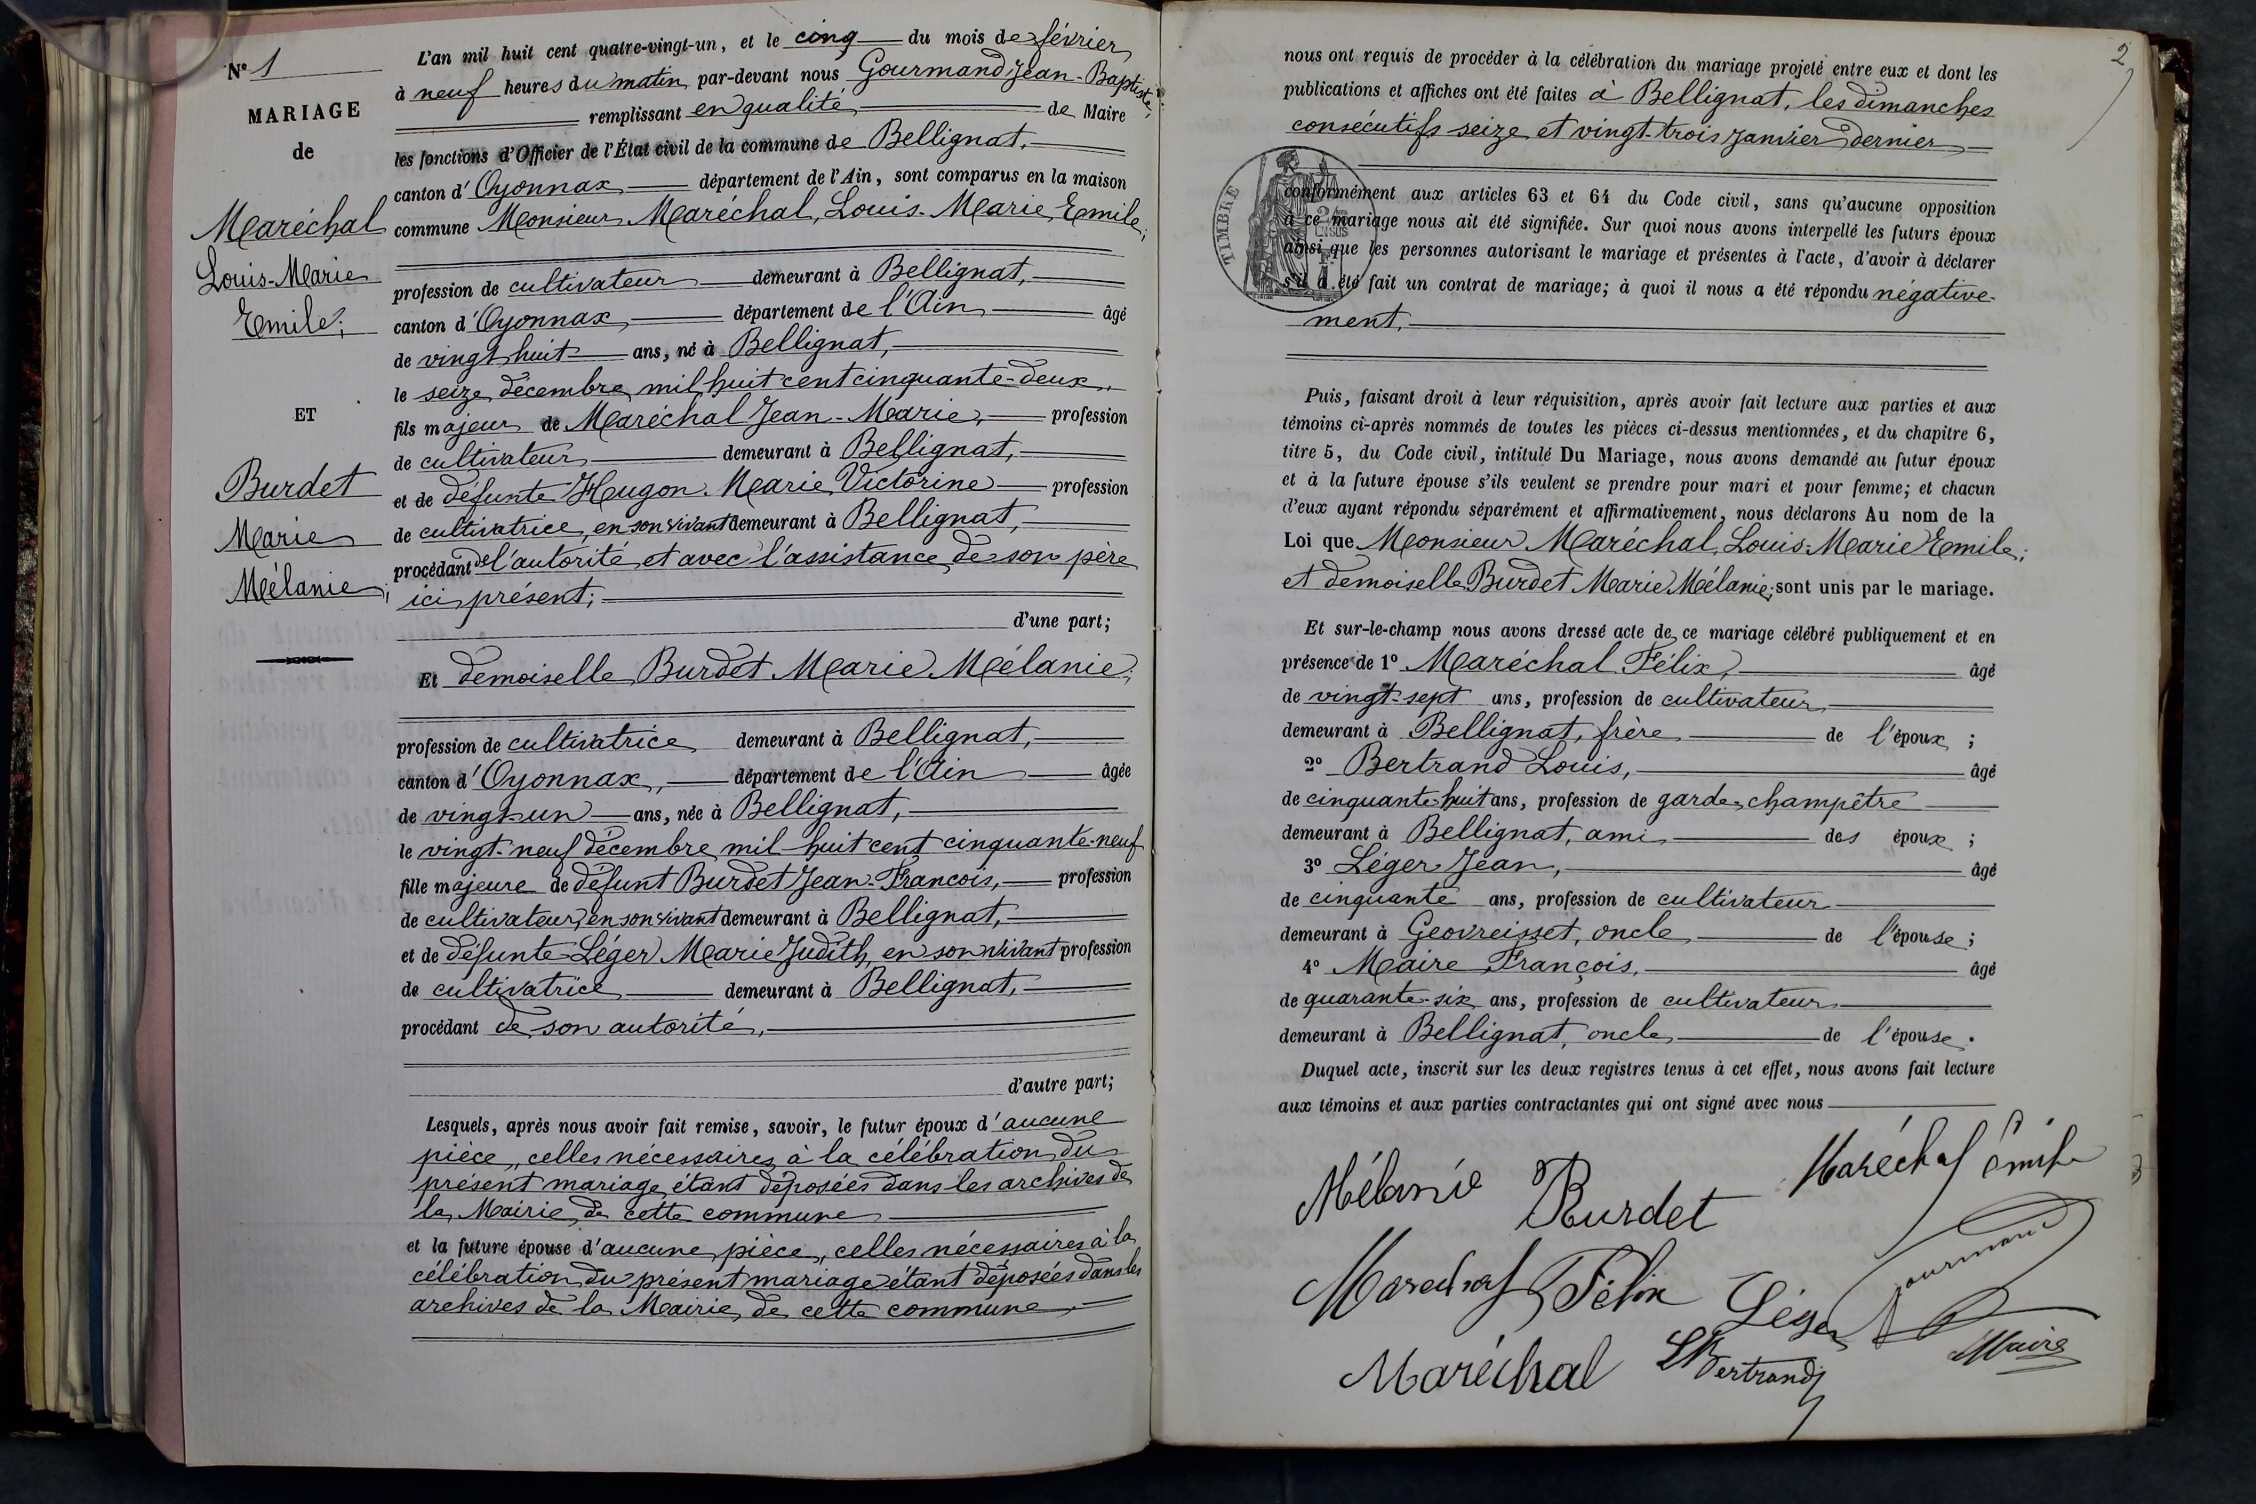 N° 1
MARIAGE
de
Maréchal
Louis-Marie
Emile;
ET
Burdet
Marie
Mélanie;
L'an mil huit cent quatre-vingt-un, et le cinq du mois de février
à neuf heures du matin, par-devant nous Gourmand Jean-Baptiste,
remplissant en qualité de Maire
les fonctions d'Officier de l'État civil de la commune de Bellignat,
canton d'Oyonnax département de l'Ain, sont comparus en la maison
commune Monsieur Maréchal, Louis-Marie Emile;
profession de cultivateur demeurant à Bellignat,
canton d'Oyonnax, département de l'Ain âgé
de vingt huit ans, né à Bellignat,
le seize décembre mil huit cent cinquante-deux,
fils majeur de Maréchal Jean-Marie, profession
de cultivateur demeurant à Bellignat,
et de défunte Hugon Marie Victorine profession
de cultivatrice, en son vivant demeurant à Bellignat,
procédant de l'autorité et avec l'assistance de son père
ici présent;
d'une part;
Et demoiselle Burdet Marie Mélanie;
profession de cultivatrice demeurant à Bellignat,
canton d'Oyonnax, département de l'Ain âgée
de vingt-un ans, née à Bellignat,
le vingt-neuf décembre mil huit cent cinquante-neuf
fille majeure de défunt Burdet Jean-François, profession
de cultivateur, en son vivant demeurant à Bellignat,
et de défunte Léger Marie Judith, en son vivant profession
de cultivatrice demeurant à Bellignat,
procédant de son autorité,
d'autre part;
Lesquels, après nous avoir fait remise, savoir, le futur époux d'aucune
pièce, celles nécessaires à la célébration du
présent mariage étant déposées dans les archives de
la Mairie de cette commune
et la future épouse d'aucune pièce, celles nécessaires à la
célébration du présent mariage étant déposées dans les
archives de la Mairie de cette commune
2
nous ont requis de procéder à la célébration du mariage projeté entre eux et dont les
publications et affiches ont été faites à Bellignat, les dimanches
consécutifs seize et vingt-trois janvier dernier
TIMBRE
conformément aux articles 63 et 64 du Code civil, sans qu'aucune opposition
à ce mariage nous ait été signifiée. Sur quoi nous avons interpellé les futurs époux
ainsi que les personnes autorisant le mariage et présentes à l'acte, d'avoir à déclarer
s'il a été fait un contrat de mariage; à quoi il nous a été répondu négative-
ment.
Puis, faisant droit à leur réquisition, après avoir fait lecture aux parties et aux
témoins ci-après nommés de toutes les pièces ci-dessus mentionnées, et du chapitre 6,
titre 5, du Code civil, intitulé Du Mariage, nous avons demandé au futur époux
et à la future épouse s'ils veulent se prendre pour mari et pour femme; et chacun
d'eux ayant répondu séparément et affirmativement, nous déclarons Au nom de la
Loi que Monsieur Maréchal, Louis-Marie Emile;
et demoiselle Burdet Marie Mélanie; sont unis par le mariage.
Et sur-le-champ nous avons dressé acte de ce mariage célébré publiquement et en
présence de 1° Maréchal Félix, âgé
de vingt-sept ans, profession de cultivateur
demeurant à Bellignat, frère de l'époux;
2° Bertrand Louis, âgé
de cinquante-huit ans, profession de garde champêtre
demeurant à Bellignat, ami des époux;
3° Léger Jean, âgé
de cinquante ans, profession de cultivateur
demeurant à Geovreisset, oncle de l'épouse;
4° Maire François, âgé
de quarante-six ans, profession de cultivateur
demeurant à Bellignat, oncle de l'épouse.
Duquel acte, inscrit sur les deux registres tenus à cet effet, nous avons fait lecture
aux témoins et aux parties contractantes qui ont signé avec nous
Mélanie Burdet Maréchal Emile
Marechal Félix Léger Gourmand
Maréchal Ls Bertrand Maire